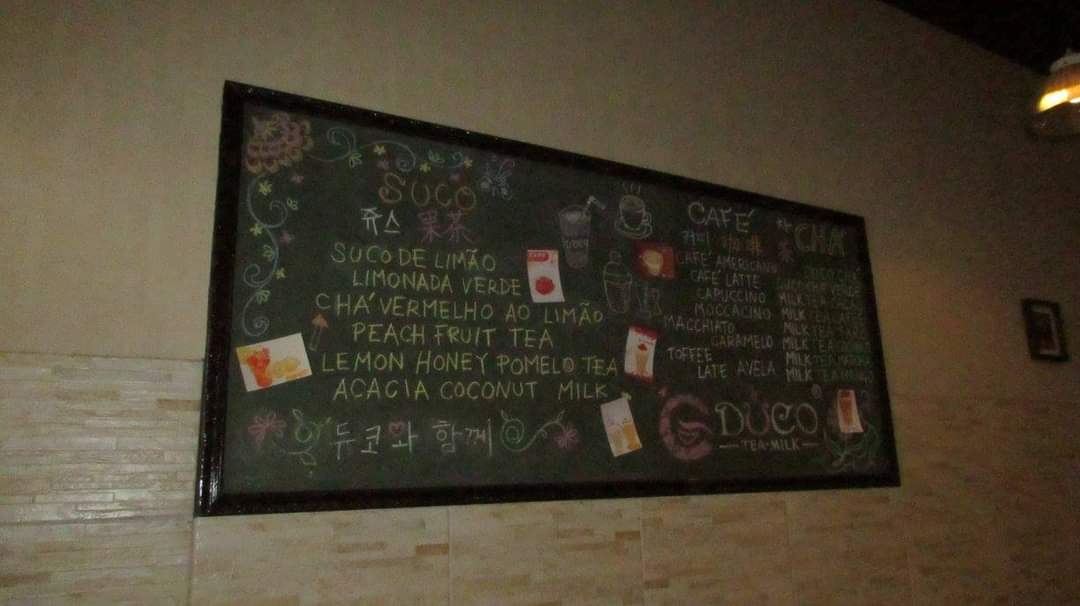 SUCO
쥬스 果茶
SUCO DE LIMÃO
LIMONADA VERDE
CHÁ VERMELHO AO LIMÃO
PEACH FRUIT TEA
LEMON HONEY POMELO TEA
ACACIA COCONUT MILK
듀코와 함께
CAFÉ
커피 咖啡
CAFÉ AMERICANO
CAFÉ LATTE
CAPUCCINO
MOCCACINO
MACCHIATO
CARAMELO
TOFFEE
LATE AVELA
CHÁ
MILK TEA
MILK TEA
MILK TEA
MILK TEA
MILK TEA
MILK TEA
DUCO
TEA-MILK